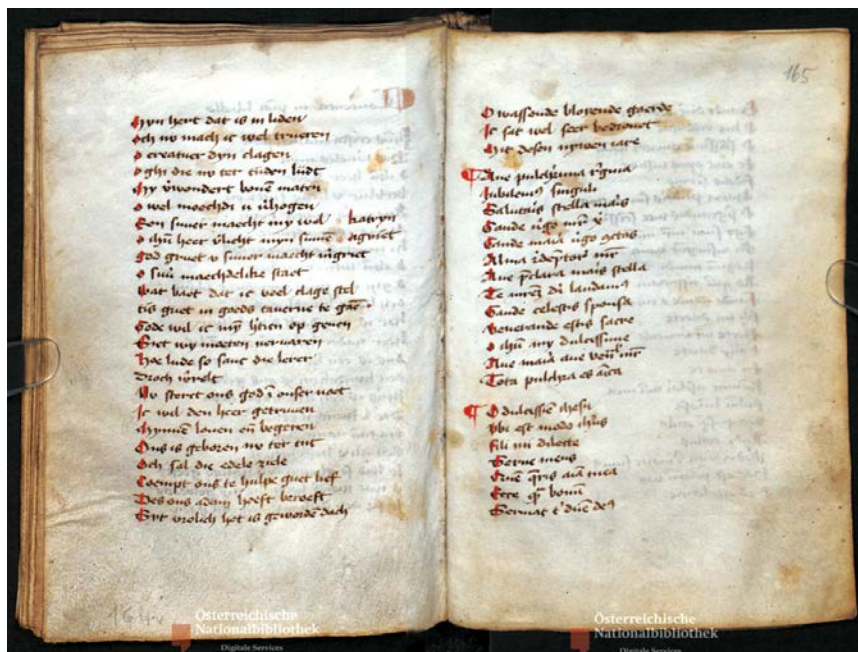 Myn hert dat is in liden
Och nv mach ic wel trueren
O creatuer dyn clagen
O ghi die nv ter tijden lijdt
My verwondert bouen maten
O wel moechdi u verhogen
Een suuer maecht my wal katryn
O ihesu heer verlicht myn sinnen agniet
God gruet v suuer maecht
O suuer maechdelike staet
Wat baet dat ic veel clage stel
tis guet in goeds tauerne te gaen
Gode wil ic op geuen
Siet wy moeten veruaren
Hoe lude so sanc die lerer
Droch werelt
Nv sterct ons god in onser noet
Ic wil den heer getruwen
Mynnen louen en begeren
Ons is geboren nv ter tijt
Och sal die edele ziele
Coempt ons te hulpe guet lief
Des ons adam heeft beroeft
Syt vrolich het is geworden dach
165
O wassende bloyende gaerde
Ic sat wel seer bedruuet
Mit desen nywen iare
Aue pulcherrima regina
Iubilemus singuli
Salutaris stella maris
Gaude virgo mater
Gaude maria virgo
Alma redemptoris mater
Aue preclara maris stella
Te mater dei laudamus
Gaude celestis sponsa
Venerande estis sacre
O ihesu my dulcissime
Aue maria aue
Tota pulchra es amica
O dulcissime ihesu
Vbi est modo ihesus
Fili mi dilecte
Serue meus
Quem queris anima mea
Ecce quam bonum
Seruat
164v
Österreichische
Nationalbibliothek
Digitale Services
Österreichische
Nationalbibliothek
Digitale Services